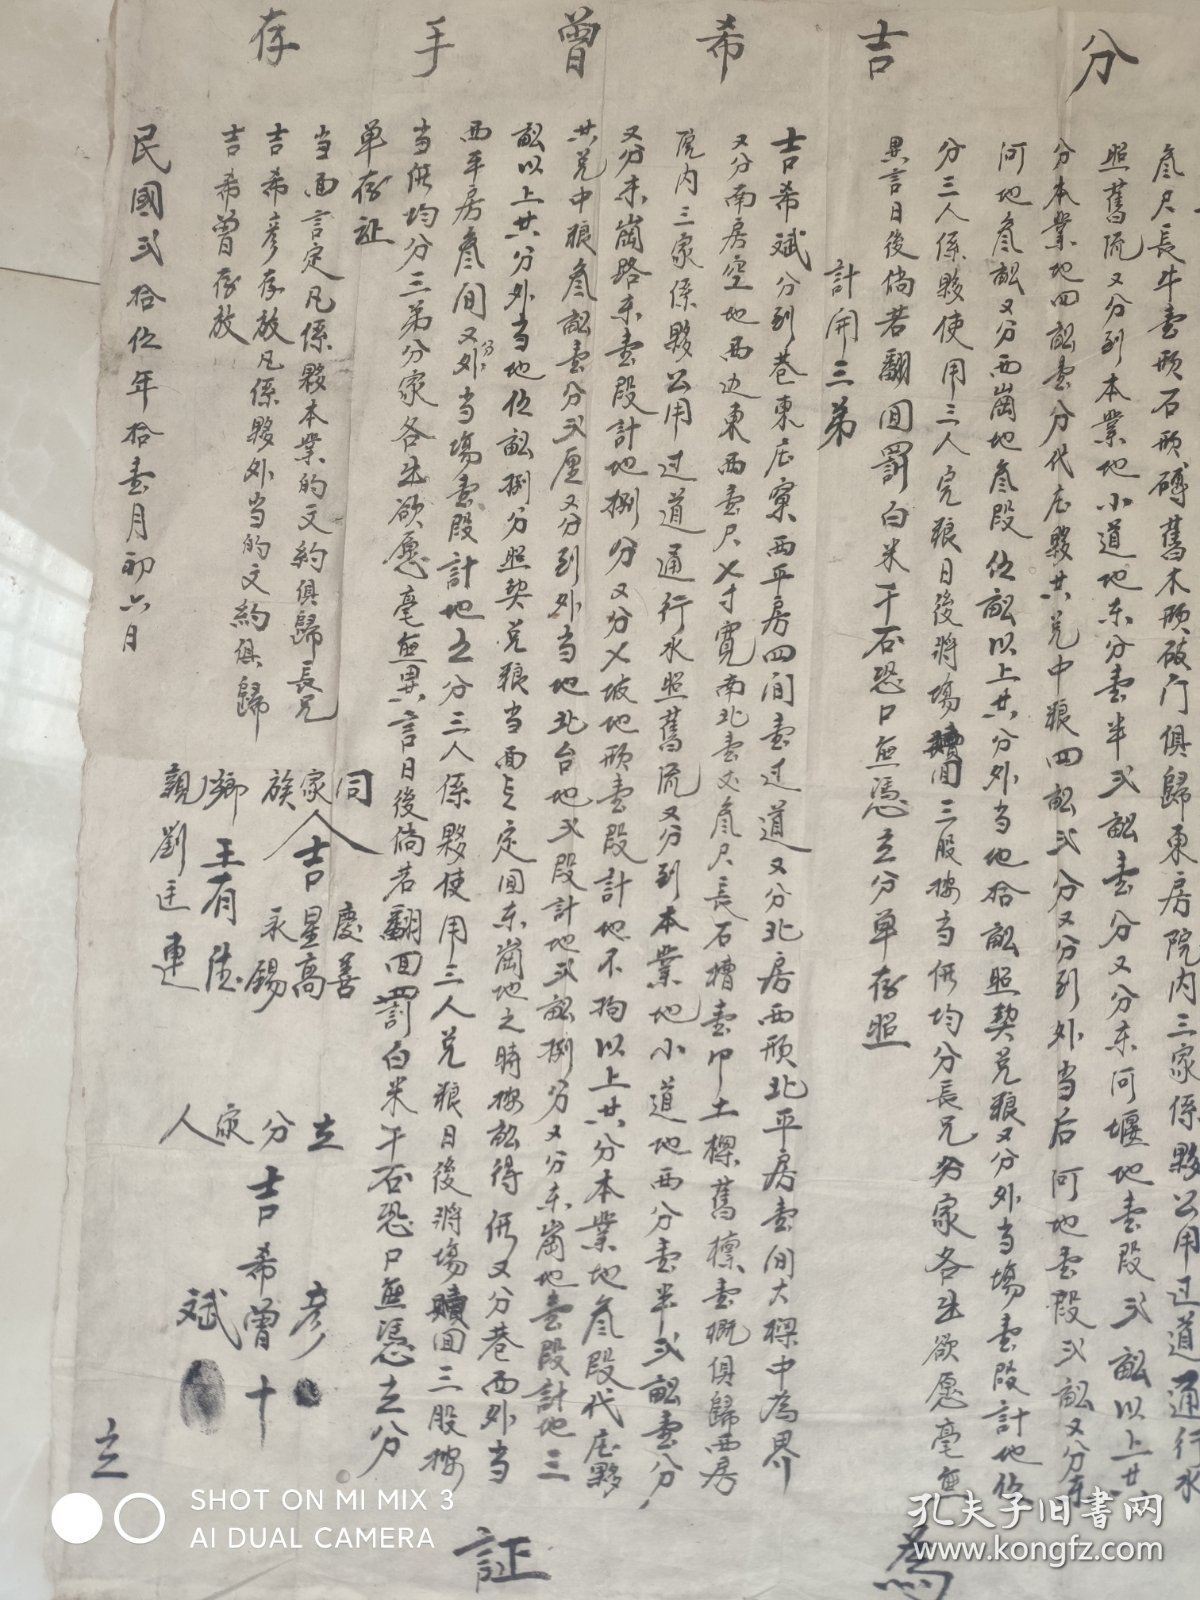 分吉希曾手存
叁尺長牛壹形石形磚舊木形破门俱歸東房院内三家係夥公用过道通行水
照舊流又分到本業地小道地东分壹半弍畝壹分又分东河堰地壹段弍畝以上共
分本業地四畝壹分代庄夥共兑中粮四畝弍分又分到外当后河地壹段弍畝又分东
河地叁畝又分西崗地叁段伍畝以上共分外当地拾畝照契兑粮又分外当塲壹段計地伍
分三人係夥使用三人完粮日後將塲贖回三股按当價均分長兄分家各出欲愿毫無
異言日後倘若翻回罰白米千石恐口無憑立分单存照
計開三弟
吉希斌分到巷東庄窠西平房四间壹过道又分北房西頭北平房壹间大樑中為界
又分南房空地西边東西壹尺乂寸寬南北壹丈叁尺長石槽壹卬土樑舊檩壹概俱歸西房
院内三家係夥公用过道通行水照舊流又分到本業地小道地西分壹半弍畝壹分
又分末崗路东壹段計地捌分又分乂坡地形壹段計地不拘以上共分本業地叁段代庄夥
共兑中粮叁畝壹分弍厘又分到外当地北台地弍段計地弍畝捌分又分东崗地壹段計地三
畝以上共分外当地伍畝捌分照契兑粮当面言定回东崗地之時按畝得價又分巷西外当
西平房叁间又分外当塲壹段計地五分三人係夥使用三人兑粮日後將塲贖回三股按
当價均分三弟分家各出欲愿毫無異言日後倘若翻回罰白米千石恐口無憑立分
单存証
当面言定凡係夥本業的文約俱歸長兄
吉希彦存放凡係夥外当的文約俱歸
吉希曾存放
同家族人吉慶善
星高
永錫
鄉王有德
親劉廷連
立分家人吉希彦
曾十
斌
民國弍拾伍年拾壹月初六日
立
為
証
SHOT ON MI MIX 3
AI DUAL CAMERA
孔夫子旧书网
www.kongfz.com